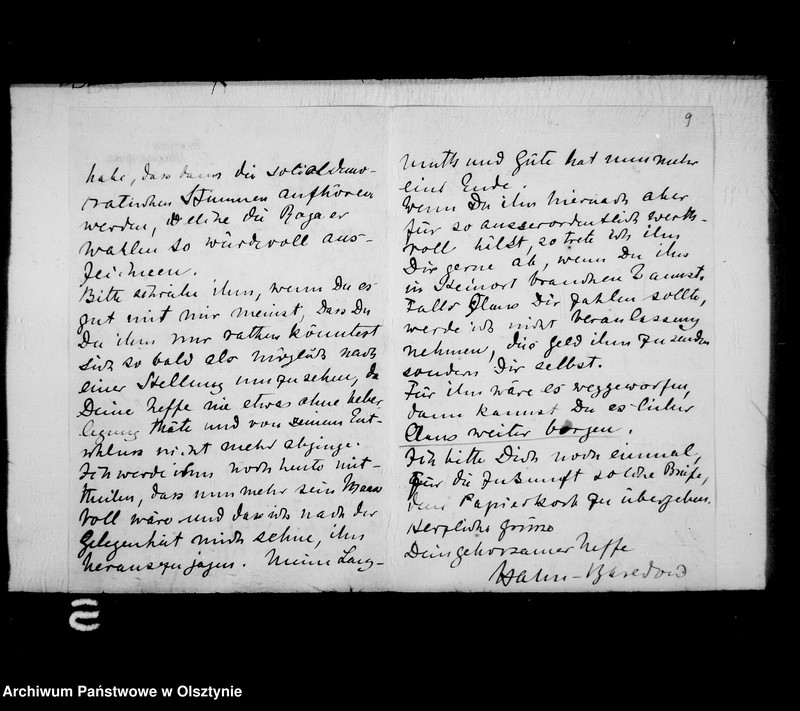 habe, dass dann die socialdemo-
cratischen Stimmen aufhören
werden, welche die
Wahlen so würdevoll aus-
zeichnen.
Bitte schreibe ihm, wenn Du es
gut mit mir meinst, dass Du
Du ihm nur rathen könntest
sich so bald als möglich nach
einer Stellung umzusehen, da
Deine Neffe nie etwas ohne Ueber-
legung thäte und von seinem Ent-
schluss nicht mehr abginge.
Ich werde ihm noch heute mit-
theilen, dass nunmehr sein Maas
voll wäre und dass ich nach der
Gelegenheit mich sehne, ihn
herauszujagen. Meine Lang-
9
muth und Güte hat nunmehr
eine Ende.
Wenn Du ihn hiernach aber
für so ausserordentlich werth-
voll hälst, so trete ich ihn
Dir gerne ab, wenn Du ihn
in Steinort brauchen kannst.
Falls Claus Dir zahlen sollte,
werde ich nicht Veranlassung
nehmen, das Geld ihm zu senden
sondern Dir selbst.
Für ihn wäre es weggeworfen,
dann kannst Du es lieber
Claus weiter borgen.
Ich bitte Dich noch einmal,
für die Zukunft solche Briefe,
dem Papierkorb zu übergeben.
Herzliche Grüsse
Dein gehorsamer Neffe
Hahn-Basedow
Archiwum Państwowe w Olsztynie